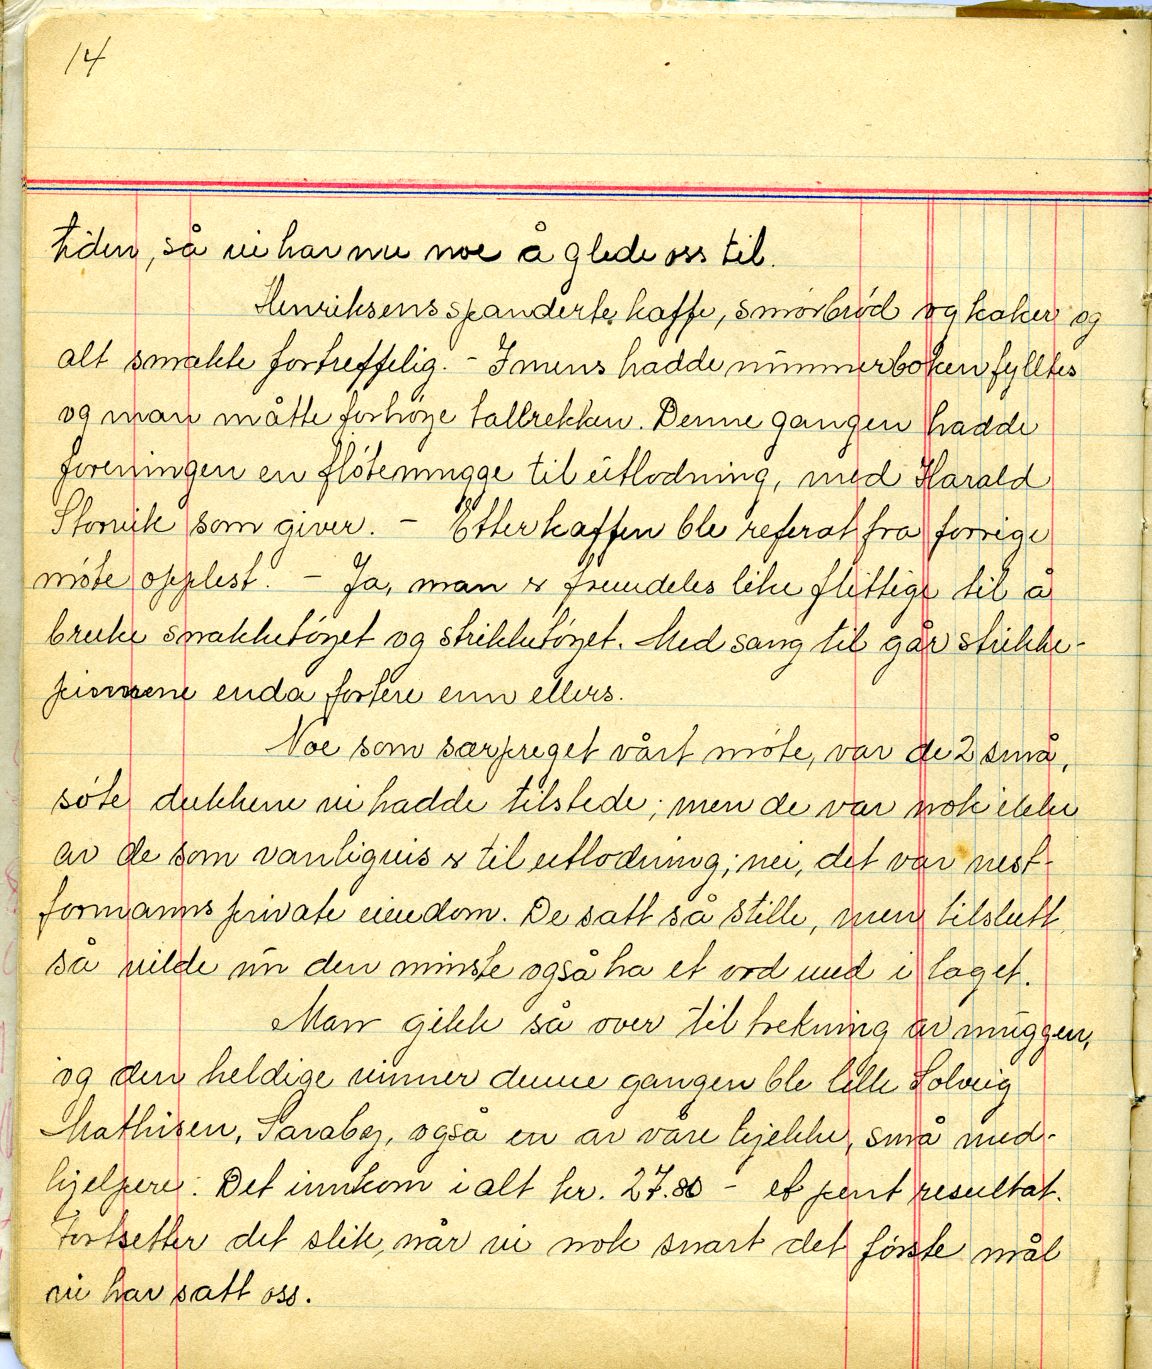 14
tiden, så vi har nu noe å glede oss til.
Henriksens spanderte kaffe, smörbröd og kaker og
alt smakte fortreffelig. - Imens hadde nummerboken fylltes
og man måtte forhöye tallrekken. Denne gangen hadde
foreningen en flötemugge til utlodning, med Harald
Storvik som giver. - Etter kaffen ble referat fra forrige
möte opplest. - Ja, man er fremdeles like flittige til å
bruke snakketöyet og strikketöyet. Med sang til går strikke-
pinnene enda fortere enn ellers.
Noe som særpreget vårt möte, var de 2 små,
söte dukkene vi hadde tilstede; men de var nok ikke
av de som vanligvis er til utlodning; nei, det var nest-
formanns private eiendom. De satt så stille, men tilslutt
så vilde un den minste også ha et ord med i laget.
Man gikk så over til trekning av muggen,
og den heldige vinner denne gangen ble lille Solveig
Mathisen, Saraby, også en av våre kjekke, små med-
hjelpere. Det innkom ialt kr. 27.80 - et pent resultat.
Fortsetter det slik, når vi nok snart det förste mål
vi har satt oss.